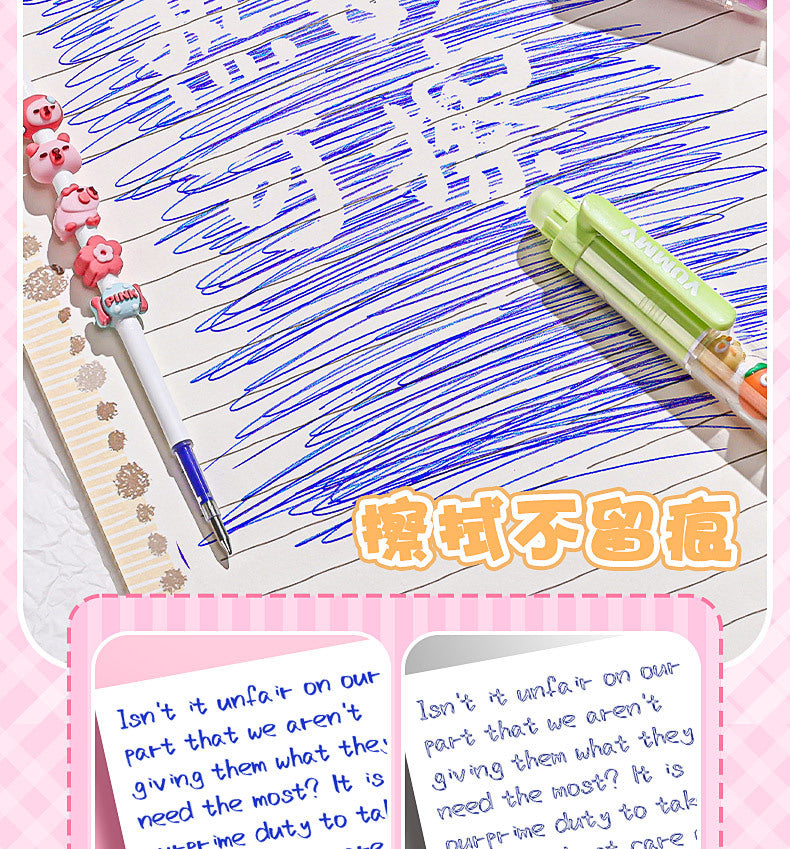 可擦
YUMMY
PINK
擦拭不留痕
Isn't it unfair on our
part that we aren't
giving them what they
need the most? It is
ourprime duty to tak
Isn't it unfair on our
part that we aren't
giving them what they
need the most? It is
ourprime duty to tak
care